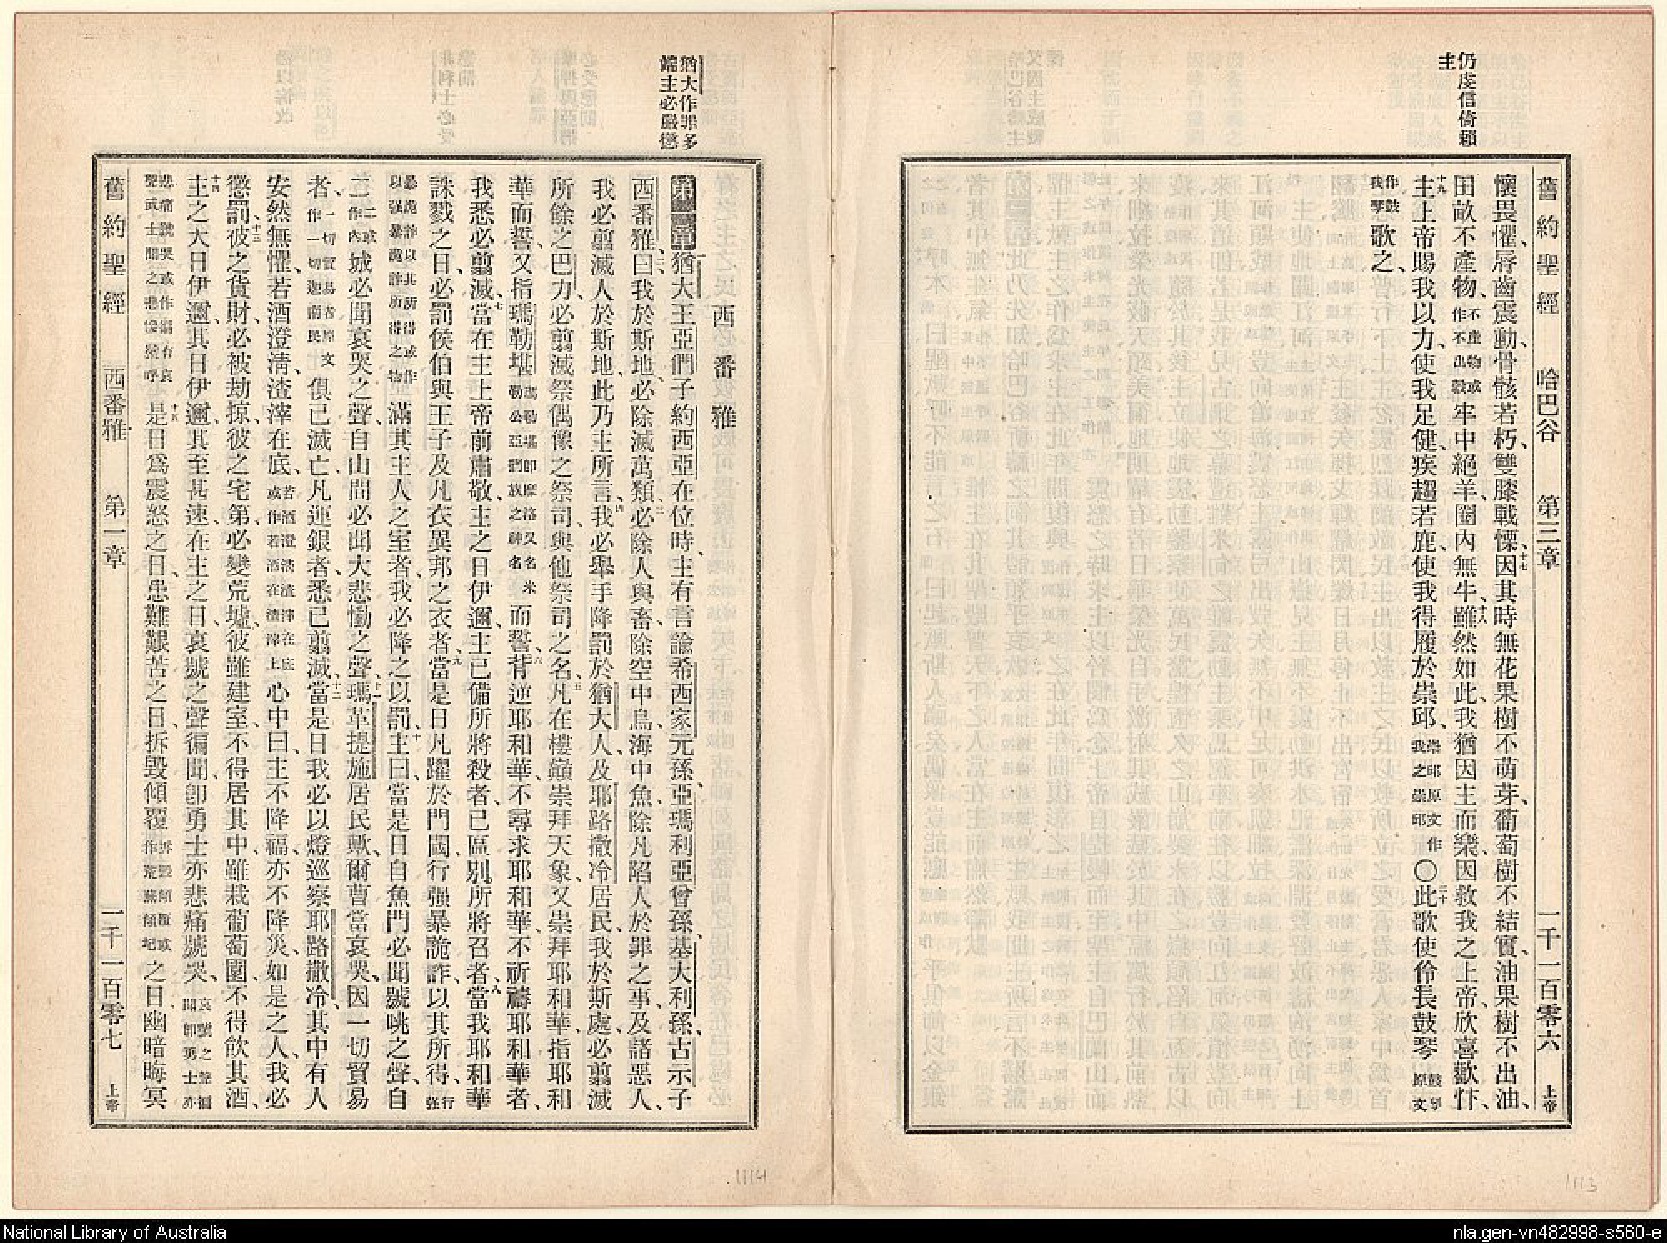 仍虔信倚賴
主
舊約聖經 哈巴谷 第三章 一千一百零六 上帝
懷畏懼、唇齒震動、骨骸若朽、雙膝戰慄、十七因其時無花果樹不萌芽、葡萄樹不結實、油果樹不出油、
田畝不產物、不產物或作不出穀牢中絕羊、圈內無牛、十八雖然如此、我猶因主而樂、因救我之上帝欣喜歡忭、
十九主上帝賜我以力、使我足健疾趨若鹿、使我得履於崇邱、崇邱原文作我之崇邱〇二十此歌使伶長鼓琴
作鼓我琴歌之、
猶大作罪多
端主必嚴懲
西番雅
第一章猶大王亞們子約西亞在位時、主有言諭希西家元孫、亞瑪利亞曾孫、基大利孫、古示子
西番雅、二曰、我於斯地、必除滅萬類、三必除人與畜、除空中鳥、海中魚、除凡陷人於罪之事、及諸惡人、
我必翦滅人於斯地、此乃主所言、四我必舉手降罰於猶大人、及耶路撒冷居民、我於斯處、必翦滅
所餘之巴力、必翦滅祭偶像之祭司、與他祭司之名、五凡在樓巔崇拜天象、又崇拜耶和華、指耶和
華而誓、又指瑪勒堪瑪勒堪即摩洛又名米勒公亞捫族之神名而誓、六背逆耶和華、不尋求耶和華、不祈禱耶和華者、
我悉必翦滅、七當在主上帝前肅敬、主之日伊邇、主已備所將殺者、已區別所將召者、八當我耶和華
誅戮之日、必罰侯伯與王子、及凡衣異邦之衣者、九當是日、凡躍於門閾、行强暴詭詐、以其所得、
滿其主人之室者、我必降之以罰、十主曰、當是日、自魚門必聞號咷之聲、自
二城二城或作內城必聞哀哭之聲、自山間必聞大悲慟之聲、十一瑪革提施居民歟、爾曹當哀哭、因一切貿易
者、一切貿易者原文作一切迦南民俱已滅亡、凡運銀者、悉已翦滅、十二當是日、我必以燈巡察耶路撒冷、其中有人
安然無懼、若酒澄清、渣滓在底、心中曰、主不降福、亦不降災、如是之人、我必
懲罰、十三彼之貨財、必被劫掠、彼之宅第、必變荒墟、彼雖建室、不得居其中、雖栽葡萄園、不得飲其酒、
十四主之大日伊邇、其日伊邇、其至甚速、在主之日、哀號之聲徧聞、即勇士亦悲痛號哭、
十五是日爲震怒之日、患難艱苦之日、拆毀傾覆之日、幽暗晦冥
舊約聖經 西番雅 第一章 一千一百零七 上帝
1114
1113
National Library of Australia
nla.gen-vn482998-s560-e